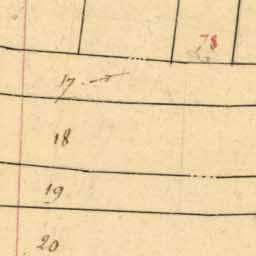 78
17
18
19
20